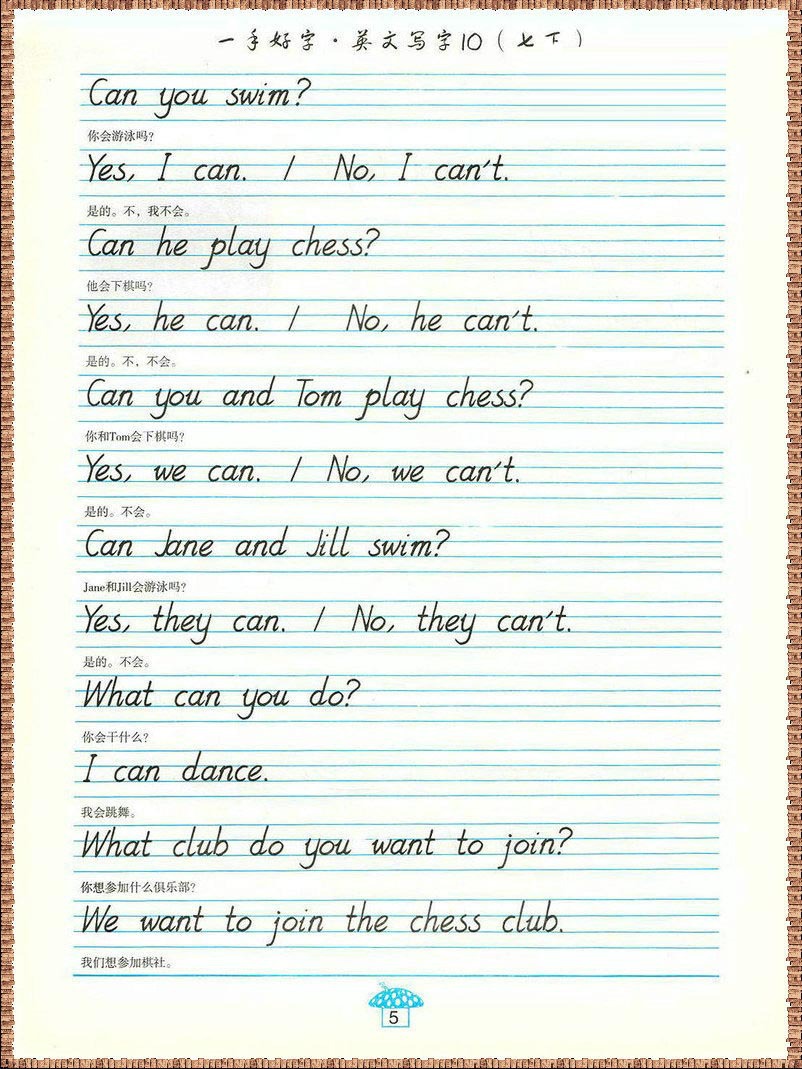 一手好字·英文写字10（七下）
Can you swim?
你会游泳吗?
Yes, I can. / No, I can't.
是的。不，我不会。
Can he play chess?
他会下棋吗?
Yes, he can. / No, he can't.
是的。不，不会。
Can you and Tom play chess?
你和Tom会下棋吗?
Yes, we can. / No, we can't.
是的。不会。
Can Jane and Jill swim?
Jane和Jill会游泳吗?
Yes, they can. / No, they can't.
是的。不会。
What can you do?
你会干什么?
I can dance.
我会跳舞。
What club do you want to join?
你想参加什么俱乐部?
We want to join the chess club.
我们想参加棋社。
5